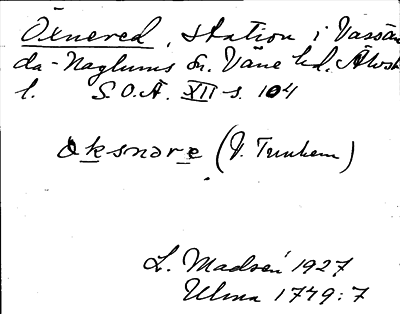 Öxnered, station i Vassän
da-Naglums sn. Väne hd. Älvsb
l. S.O.Ä. XII s. 104
oksnəre (V. Tunhem)
L. Madsén 1927
Ulma 1779:7